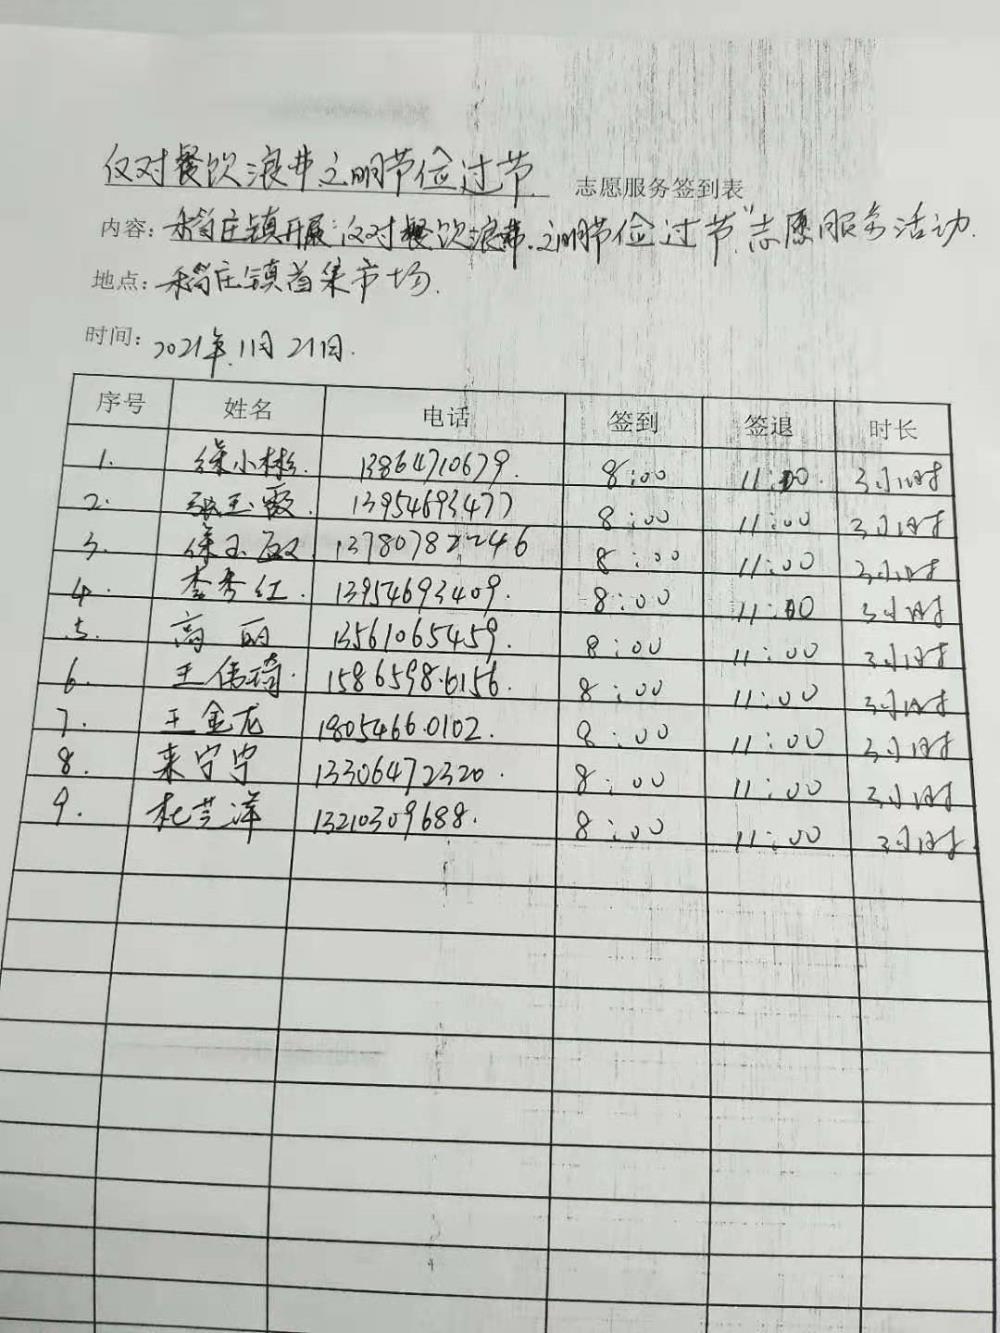 反对餐饮浪费 文明节俭过节 志愿服务签到表
内容：稻庄镇开展"反对餐饮浪费 文明节俭过节"志愿服务活动.
地点：稻庄镇首集市场.
时间：2021年11月21日.
序号 姓名 电话 签到 签退 时长
1. 徐小彬. 13864710679. 8:00 11:00. 3小时
2. 张玉霞. 13954693477 8:00 11:00 3小时
3. 徐玉敏 13780782246 8:00 11:00 3小时
4. 李秀红. 13954693409. 8:00 11:00 3小时
5. 高丽 13561065459 8:00 11:00 3小时
6. 王倩琦. 15865986156. 8:00 11:00 3小时
7. 王金龙 18054660102. 8:00 11:00 3小时
8. 来宁宁 13306472320. 8:00 11:00 3小时
9. 杜兰洋 13210309688. 8:00 11:00 3小时.